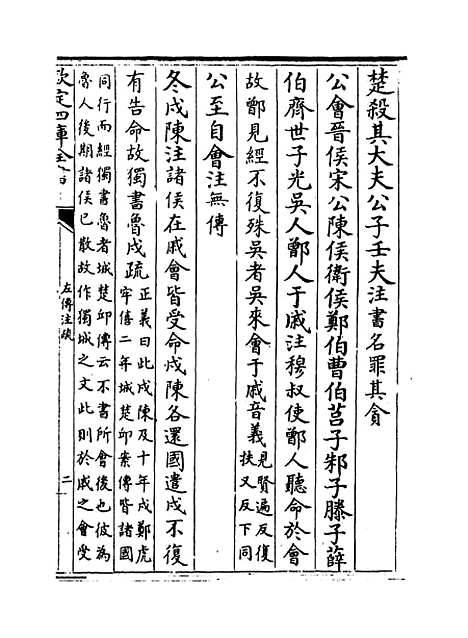 楚殺其大夫公子壬夫注書名罪其貪
公會晉侯宋公陳侯衛侯鄭伯曹伯莒子邾子滕子薛
伯齊世子光吳人鄫人于戚注穆叔使鄫人聽命於會
故鄫見經不復殊吳者吳來會于戚音義見賢遍反復
扶又反下同
公至自會注無傳
冬戍陳注諸侯在戚會皆受命戍陳各還國遣戍不復
有告命故獨書魯戍疏正義曰此戍陳及十年戍鄭虎
牢僖二年城楚邱案傳皆諸國
同行而經獨書魯者城楚邱傳云不書所會後也彼為
魯人後期諸侯已散故作獨城之文此則於戚之會受
欽定四庫全書
左傳注疏
二